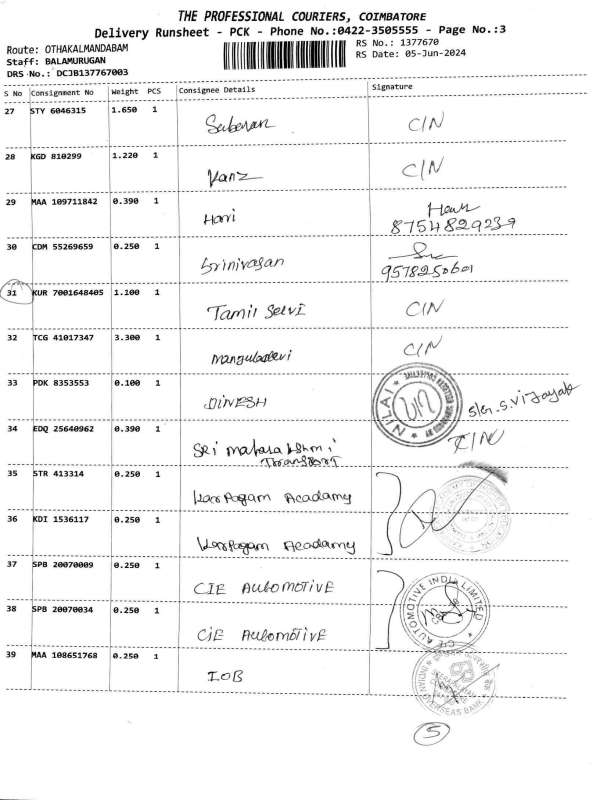 THE PROFESSIONAL COURIERS, COIMBATORE
Delivery Runsheet - PCK - Phone No.:0422-3505555 - Page No.:3
Route: OTHAKALMANDABAM
RS No.: 1377670
Staff: BALAMURUGAN
RS Date: 05-Jun-2024
DRS No.: DCJB137767003
S No Consignment No Weight PCS Consignee Details Signature
27 STY 6046315 1.650 1
C/N
28 KGD 810299 1.220 1
C/N
29 MAA 109711842 0.390 1 Hari
8754829239
30 CDM 55269659 0.250 1 Srinivasan
9578250601
31 KUR 7001648405 1.100 1 Tamil Selvi C/N
32 TCG 41017347 3.300 1 C/N
33 PDK 8353553 0.100 1 DINESH
NILAI
34 EDQ 25640962 0.390 1 Sri mahalakshmi C/N
Transport
35 STR 413314 0.250 1 Karpagam Acadamy
36 KDI 1536117 0.250 1 Karpagam Acadamy
37 SPB 20070009 0.250 1 CIE AUtoMOTIVE
38 SPB 20070034 0.250 1 CIE AUtoMOTIVE
CIE AUTOMOTIVE INDIA LIMITED
39 MAA 108651768 0.250 1 IOB
INDIAN OVERSEAS BANK
5